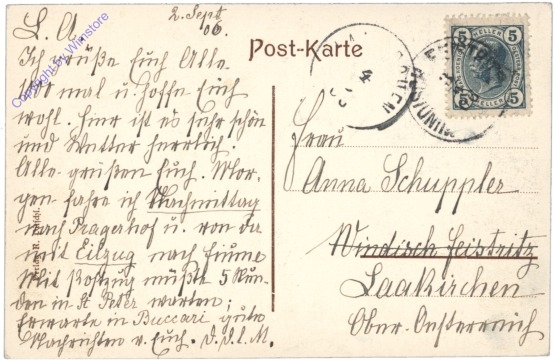 2. Sept.
06.
L. A.
Ich grüße Euch Alle
1000 mal u. hoffe Euch
wohl. Hier ist es sehr schön
und Wetter herrlich.
Alle grüßen Euch. Mor-
gen fahre ich Nachmittag
nach Pragerhof u. von da
mit Eilzug nach Fiume
Mit Postzug müßte 5 Stun-
den in St Peter warten;
Erwarte in Buccari gute
Nachrichten v. Euch.
Post-Karte
5 HELLER 5
5 HELLER 5
Frau
Anna Schuppler
Windisch Feistritz
Laakirchen
Ober-Oesterreich
Copyright by Wimstore